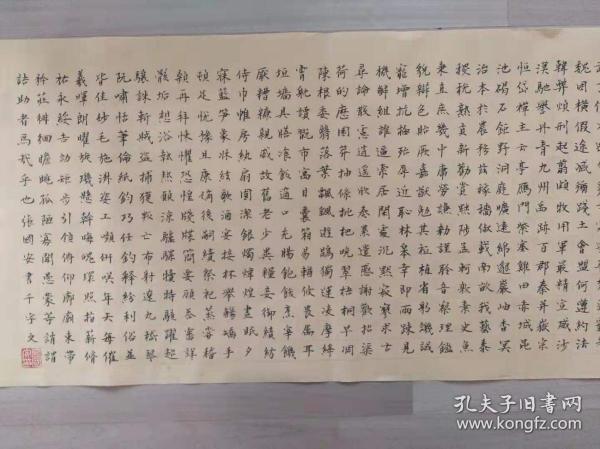 魏困橫假途滅虢踐土會盟何遵約法
韓弊煩刑起翦頗牧用軍最精宣威沙
漠馳譽丹青九州禹跡百郡秦并嶽宗
恒岱禪主云亭雁門紫塞雞田赤城昆
池碣石鉅野洞庭曠遠綿邈巖岫杳冥
治本於農務茲稼穡俶載南畝我藝黍
稷稅熟貢新勸賞黜陟孟軻敦素史魚
秉直庶幾中庸勞謙謹敕聆音察理鑑
貌辨色貽厥嘉猷勉其祗植省躬譏誡
寵增抗極殆辱近恥林皋幸即兩疏見
機解組誰逼索居閒處沉默寂寥求古
尋論散慮逍遙欣奏累遣慼謝歡招渠
荷的歷園莽抽條枇杷晚翠梧桐早凋
陳根委翳落葉飄颻遊鵾獨運凌摩絳
霄耽讀翫市寓目囊箱易輶攸畏屬耳
垣牆具膳餐飯適口充腸飽飫烹宰饑
厭糟糠親戚故舊老少異糧妾御績紡
侍巾帷房紈扇圓潔銀燭煒煌晝眠夕
寐藍筍象床絃歌酒宴接杯舉觴矯手
頓足悅豫且康嫡後嗣續祭祀蒸嘗稽
顙再拜悚懼恐惶箋牒簡要顧答審詳
骸垢想浴執熱願涼驢騾犢特駭躍超
驤誅斬賊盜捕獲叛亡布射遼丸嵇琴
阮嘯恬筆倫紙鈞巧任釣釋紛利俗並
皆佳妙毛施淑姿工顰妍笑年矢每催
羲暉朗曜璇璣懸斡晦魄環照指薪修
祜永綏吉劭矩步引領俯仰廊廟束帶
矜莊徘徊瞻眺孤陋寡聞愚蒙等誚謂
語助者焉哉乎也張國安書千字文
孔夫子旧书网
www.kongfz.com